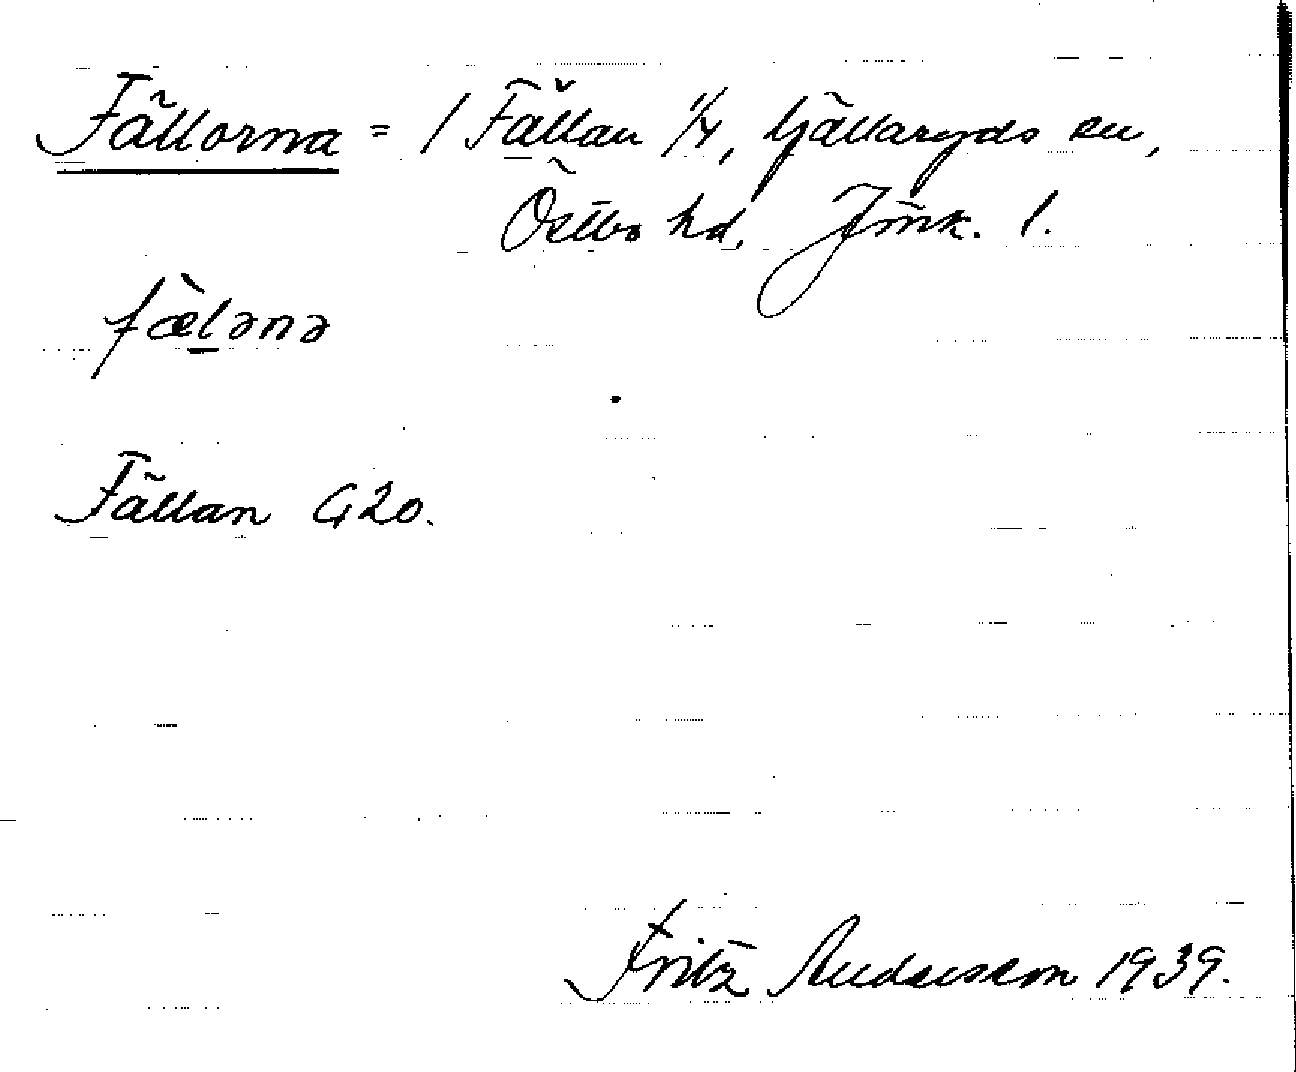 Fällorna = 1 Fällan 1/4, Hjällaryds sn,
Östbo hd, Jmk. l.
fælənə
Fällan G20.
Fritz Andersson 1939.